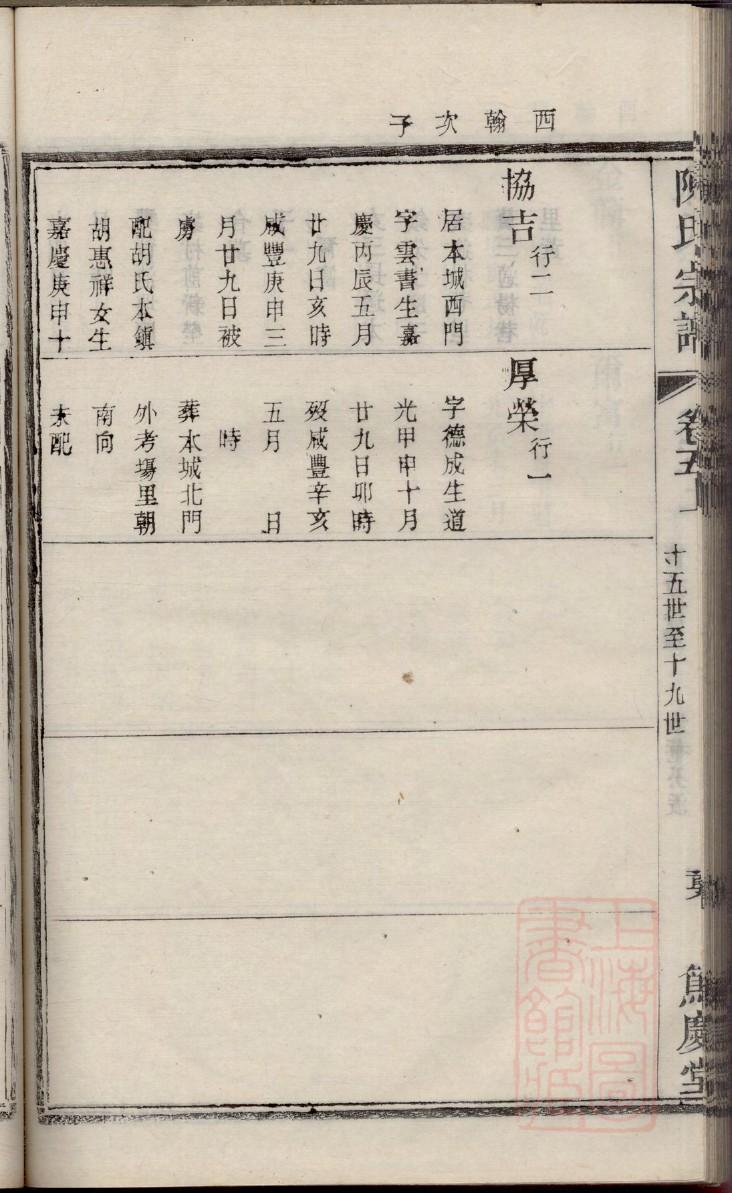 陳氏宗譜
卷五上
十五世至十九世
篤慶堂
西翰次子
協吉行二
居本城西門
字雲書生嘉
慶丙辰五月
廿九日亥時
咸豐庚申三
月廿九日被
虜
配胡氏本鎮
胡惠祥女生
嘉慶庚申十
厚榮行一
字德成生道
光甲申十月
廿九日卯時
歿咸豐辛亥
五月 日
時
葬本城北門
外考塲里朝
南向
未配
上海圖書館藏